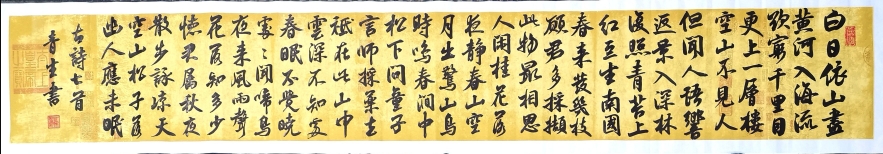 白日依山盡
黄河入海流
欲窮千里目
更上一層樓
空山不見人
但聞人語響
返景入深林
復照青苔上
紅豆生南國
春來發幾枝
願君多採擷
此物最相思
人閑桂花落
夜静春山空
月出驚山鳥
時鳴春澗中
松下問童子
言師採藥去
秪在此山中
雲深不知處
春眠不覺曉
處〻聞啼鳥
夜來風雨聲
花落知多少
懷君屬秋夜
散步詠凉天
空山松子落
幽人應未眠
古詩七首
青生書